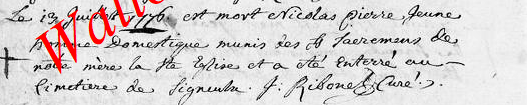 Le 13 Juillet 1776 est mort Nicolas pierre, Jeune
homme Domestique munis des St Sacremens de
notre mère la Ste Eglise et a été Enterré au
Cimetiere de Signeulx. J. Ribonet Curé.
Wat